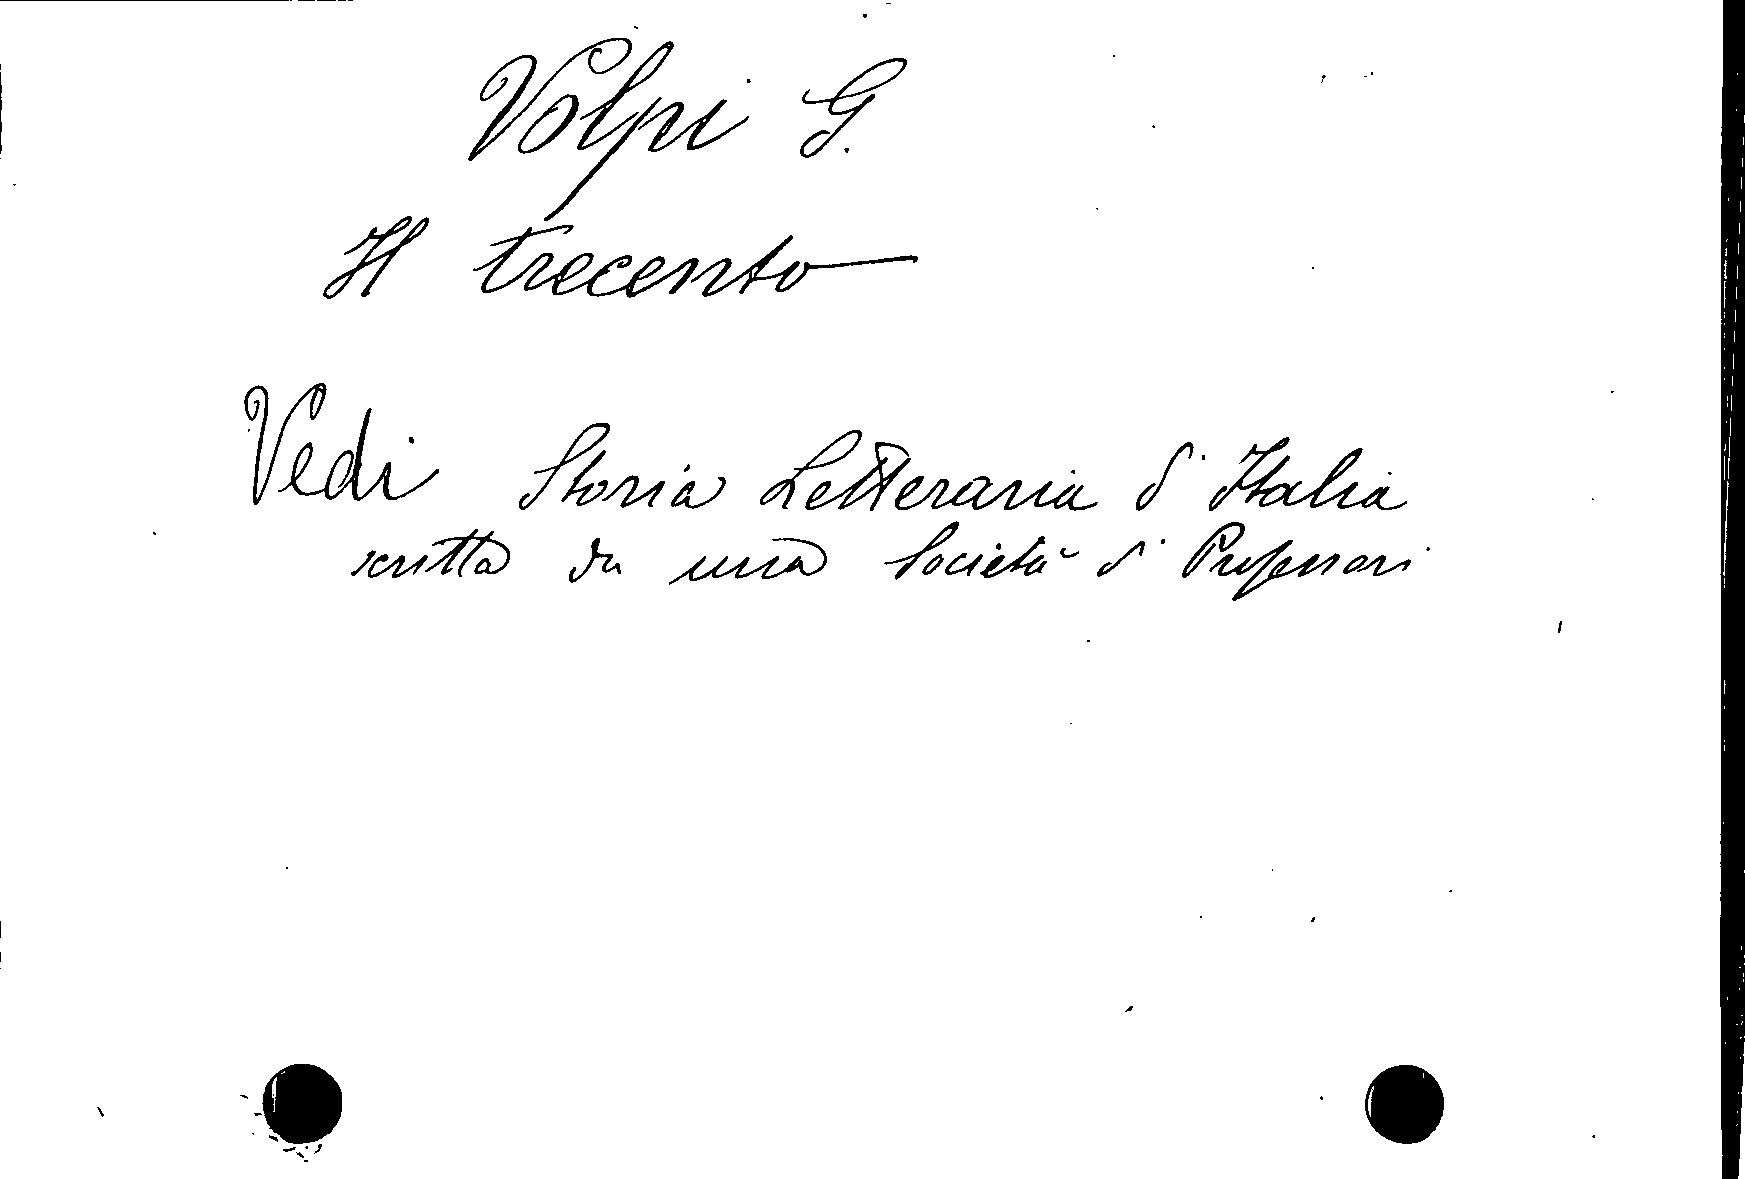 Volpi G.
Il trecento
Vedi Storia Letteraria d'Italia
scritta da una Società di Professori